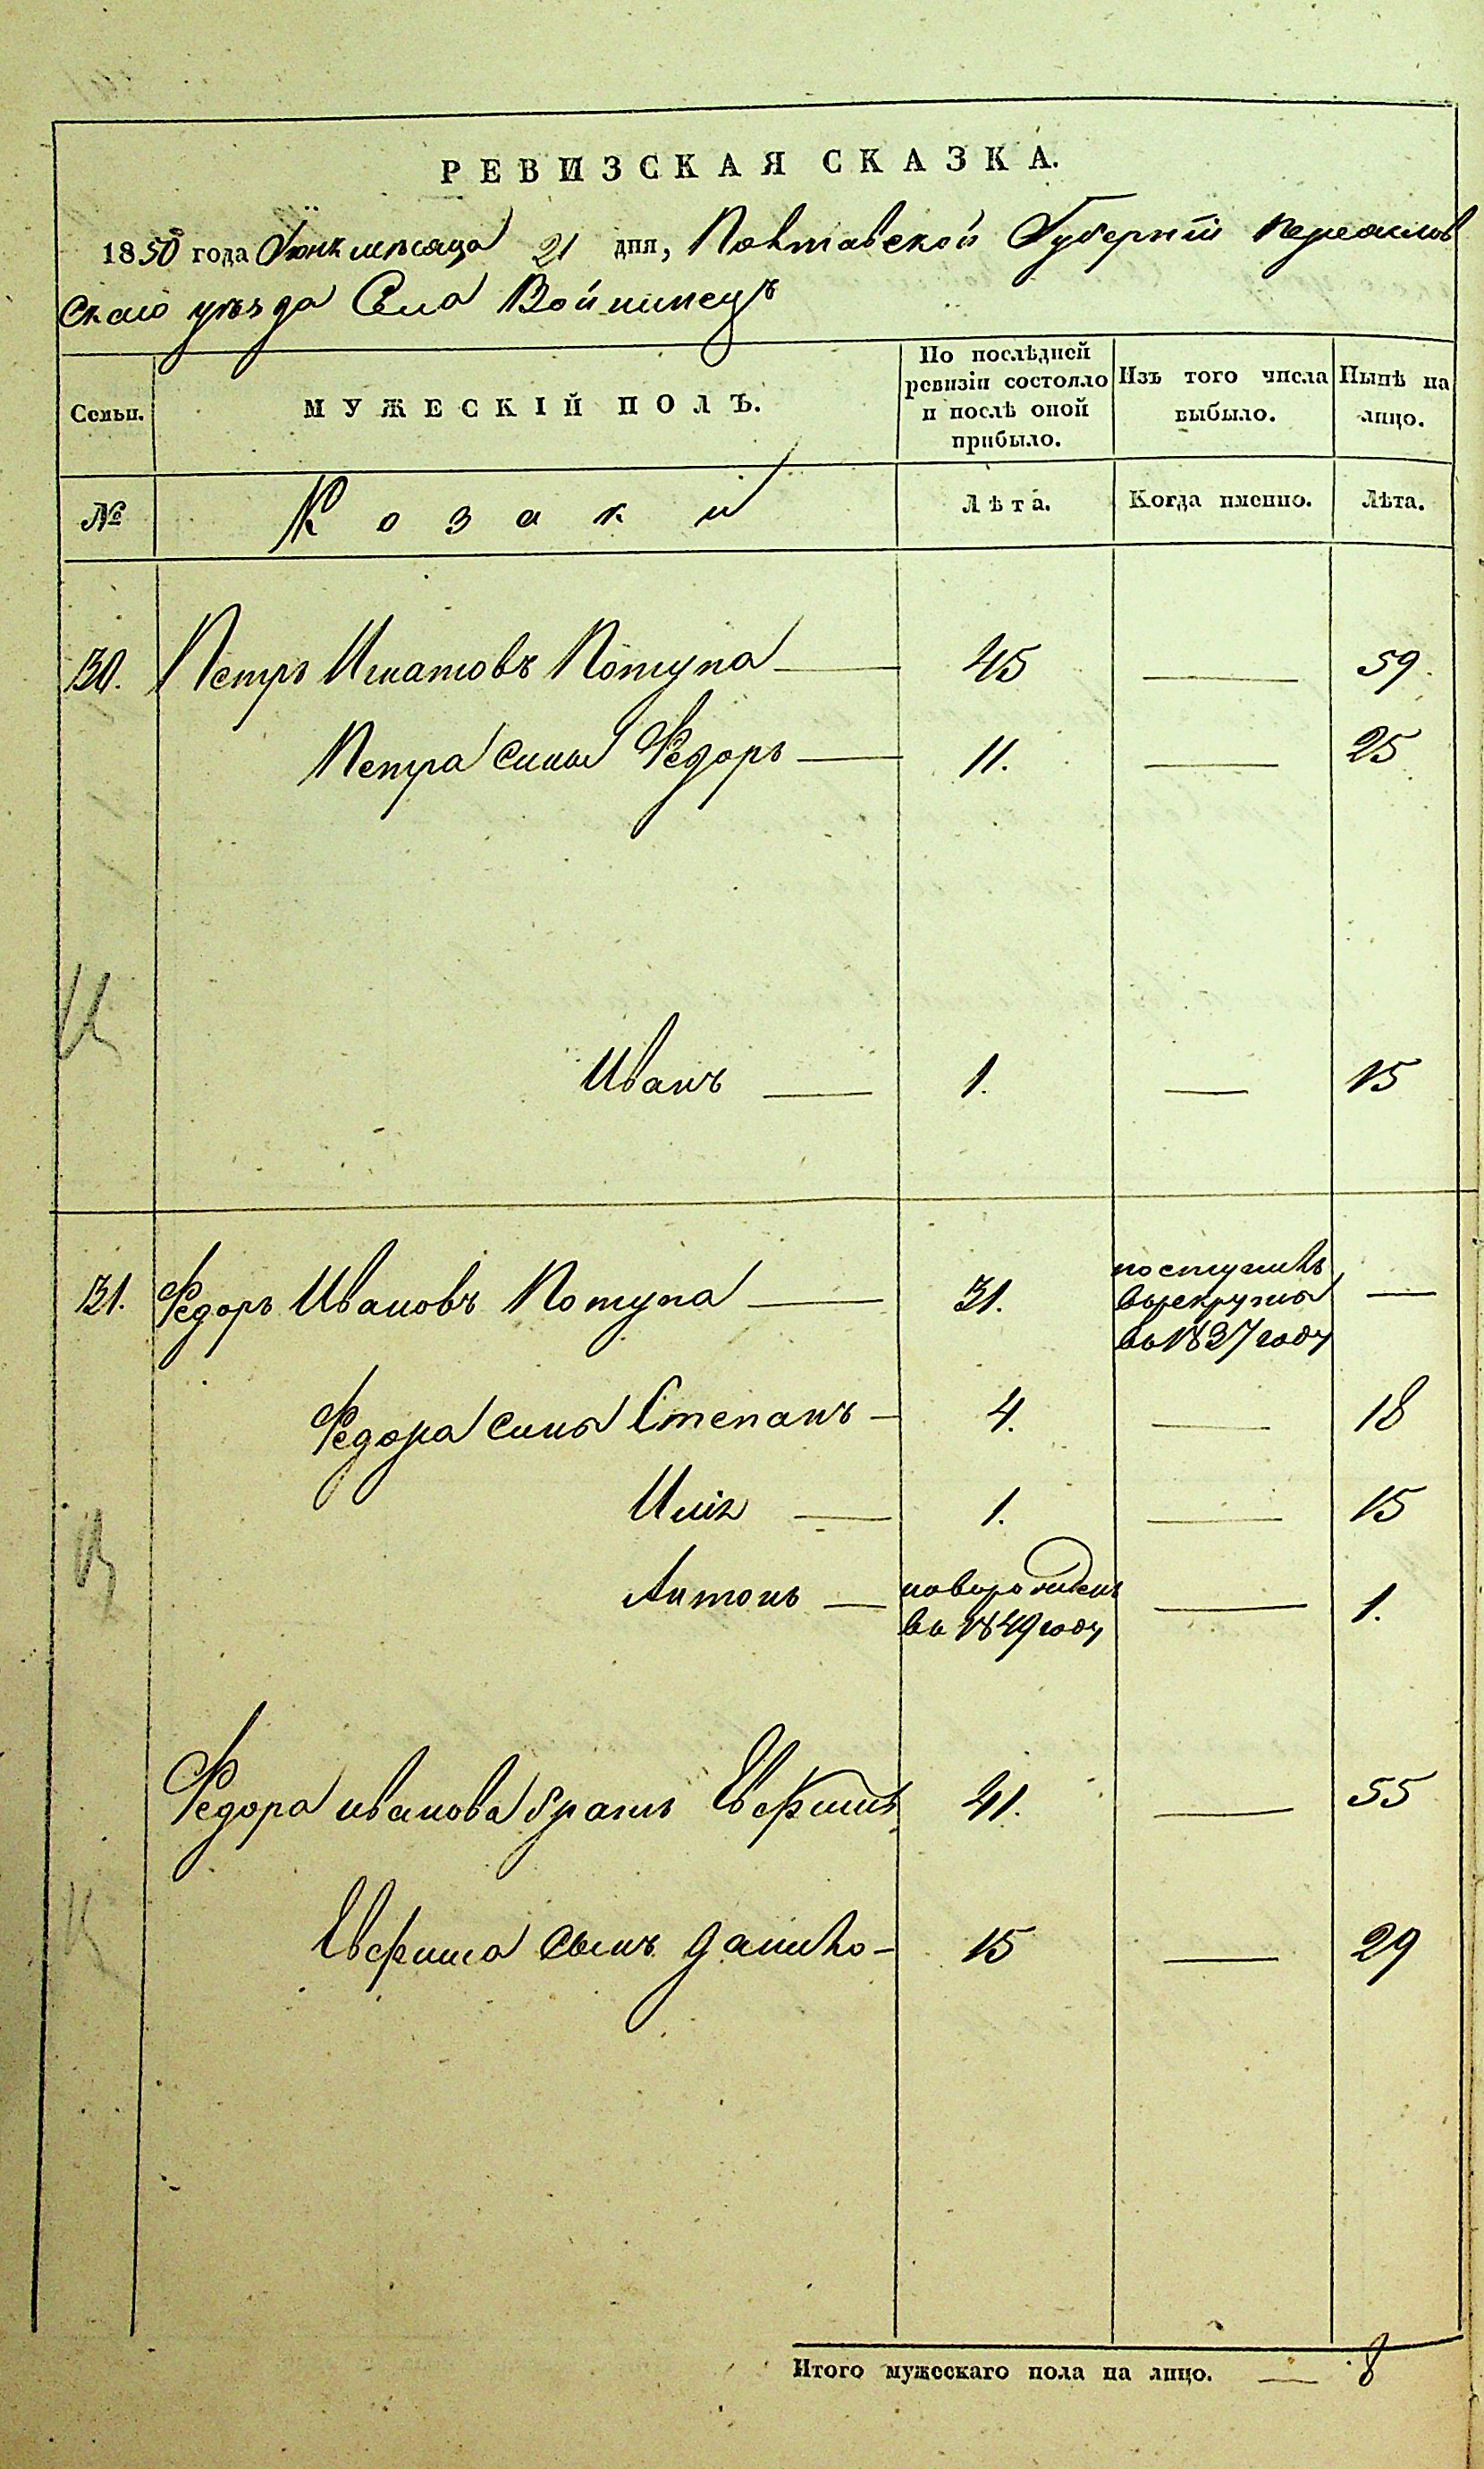 РЕВИЗСКАЯ СКАЗКА.
1850 года Іюня мѣсяца 21 дня, Полтавской Губерніи Переяслов
скаго уѣзда Села Войтинецъ
Семьи. МУЖЕСКІЙ ПОЛЪ. По послѣдней ревизіи состояло и послѣ оной прибыло. Изъ того числа выбыло. Нынѣ на лицо.
№ Козаки Лѣта. Когда именно. Лѣта.
30. Петръ Игнатовъ Потупа 45 — 59.
Петра сины Федоръ 11. — 25
Иванъ 1. — 15
31. Федоръ Ивановъ Потупа 31. поступилъ врекруты во 1837 году —
Федора сины Степанъ 4. — 18
Илія 1. — 15
Антонъ новорожденъ во 1849 году — 1.
Федора иванова братъ Евфимъ 41. — 55
Евфима сынъ данило 15 — 29
Итого мужескаго пола на лицо. — 8